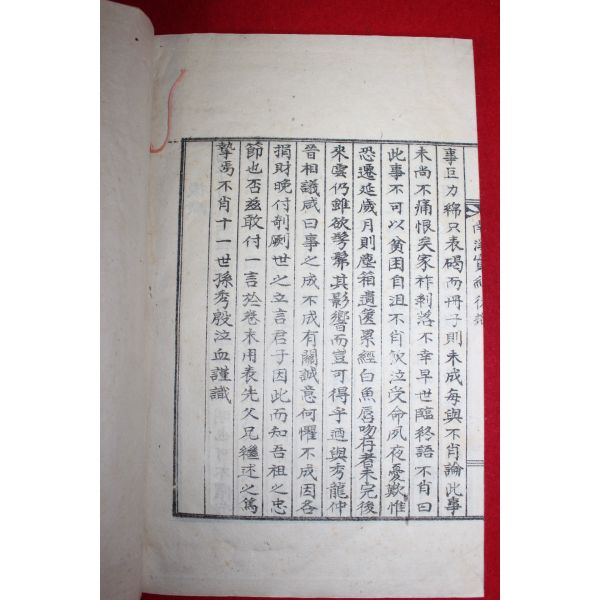 南海實紀後識
事巨力綿只表碣而冊子則未成每與不肖論此事
未尚不痛恨矣家祚剝落不幸早世臨終語不肖曰
此事不可以貧困自沮不肖飮泣受命夙夜憂歎惟
恐遷延歲月則塵箱遺篋累經白魚唇吻存者未完後
來雲仍雖欲髣髴其影響而豈可得乎迺與秀龍仲
晉相議咸曰事之成不成有關誠意何懼不成因各
捐財晚付剞劂世之立言君子因此而知吾祖之忠
節也否玆敢付一言於卷末用表先父兄繼述之篤
摯焉不肖十一世孫秀殷泣血謹識